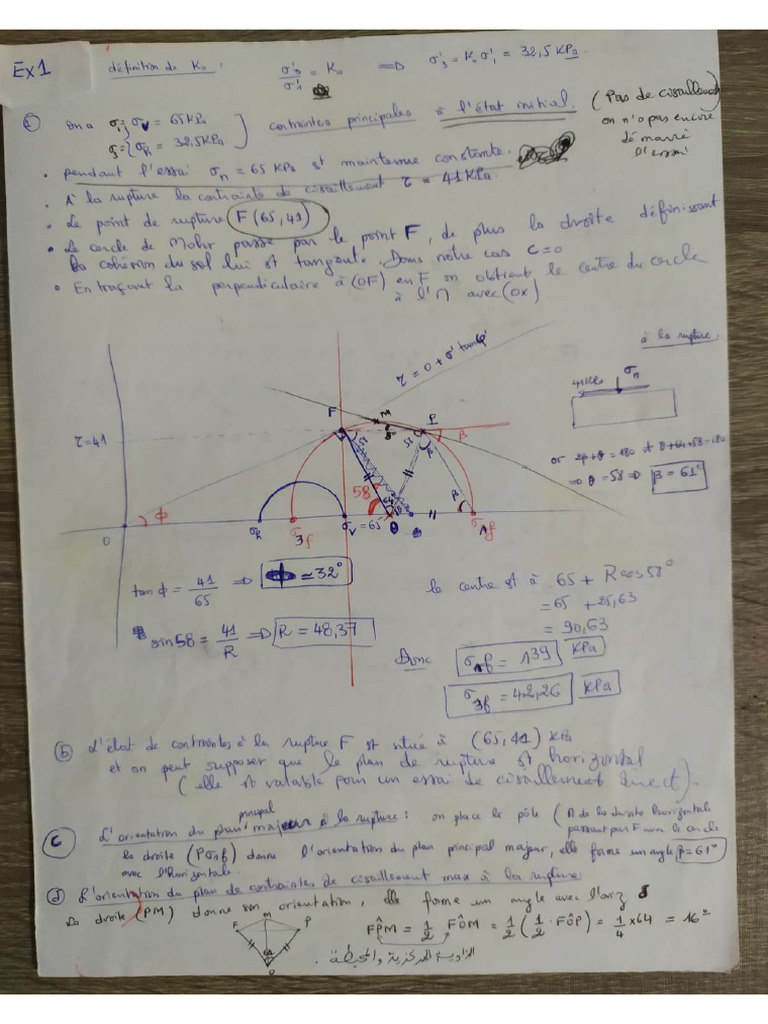 Ex1
définition de K₀ : σ'₃/σ'₁ = K₀ ⇒ σ'₃ = K₀ σ'₁ = 32,5 KPa
on a σ₁ = σᵥ = 65 KPa
= σ_R = 32,5 KPa } contraintes principales à l'état initial. (Pas de cisaillement
on n'a pas encore
démarré
l'essai
• pendant l'essai σₙ = 65 KPa est maintenue constante.
• A la rupture la contrainte de cisaillement τ = 41 KPa.
• Le point de rupture F(65, 41)
• Le cercle de Mohr passe par le point F, de plus la droite définissant
la cohésion du sol lui est tangente. Dans notre cas C = 0
• En traçant la perpendiculaire à (OF) en F on obtient le centre du cercle
à l'∩ avec (OX)
à la rupture
τ = 0 + σ' tan φ'
41 KPa
σₙ
F
M
P
τ = 41
β
φ
58
O
σ_R
σ₃f
σᵥ = 65
σ₁f
⇒ θ = 58 ⇒ β = 61°
tan φ = 41/65 ⇒ φ ≃ 32°
sin 58 = 41/R ⇒ R = 48,37
le centre est à 65 + R cos 58°
= 65 + 25,63
= 90,63
Donc σ₁f = 139 KPa
σ₃f = 42,26 KPa
(b) L'état de contraintes à la rupture F est situé à (65, 41) KPa
et on peut supposer que le plan de rupture est horizontal
(elle est valable pour un essai de cisaillement direct).
(c) L'orientation du plan principal majeur à la rupture : on place le pôle (∩ de la droite horizontale
passant par F avec le cercle
la droite (Pσ₁f) donne l'orientation du plan principal majeur, elle forme un angle β = 61°
avec l'horizontale.
(d) L'orientation du plan de contraintes de cisaillement max à la rupture
La droite (PM) donne son orientation, elle forme un angle avec l'horiz
F M P
O
FP̂M = 1/2 FÔM = 1/2 (1/2 · FÔP) = 1/4 × 64 = 16°
الزاوية المركزية والمحيطة.